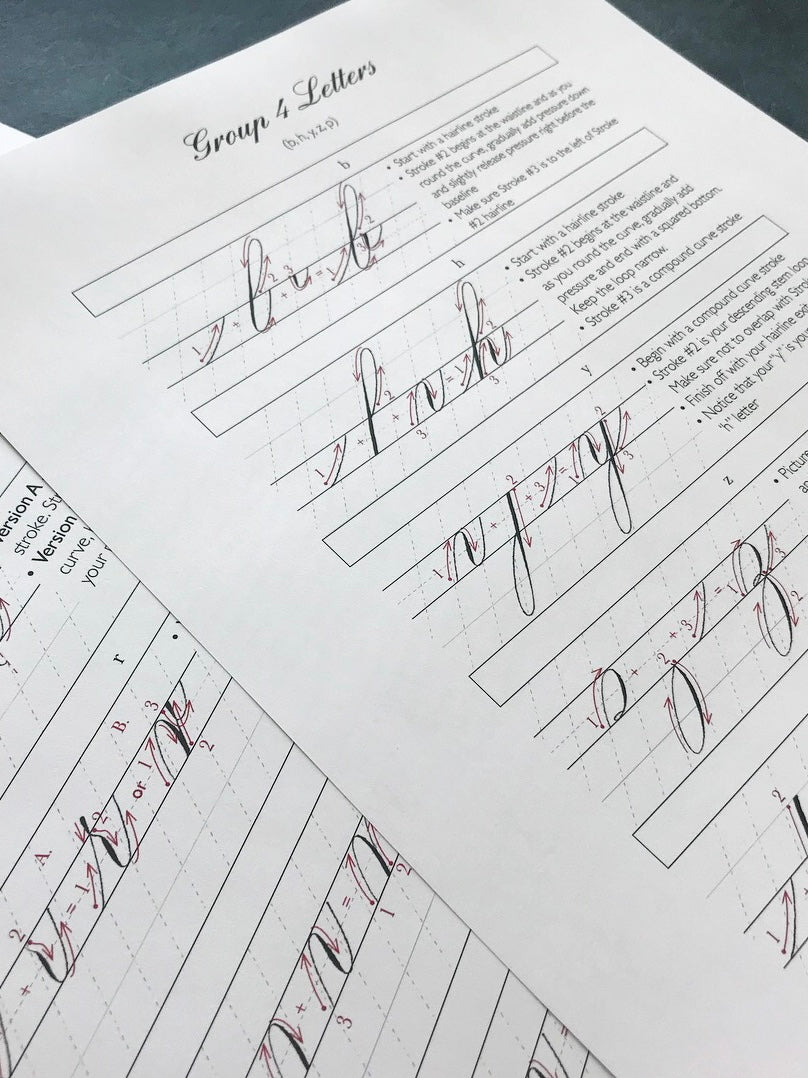 Group 4 Letters
(b, h, y, z, p)
b
• Start with a hairline stroke
• Stroke #2 begins at the waistline and as you
round the curve, gradually add pressure down
and slightly release pressure right before the
baseline
• Make sure Stroke #3 is to the left of Stroke
#2 hairline
1 + 2 + 3 = 1 2 3
h
• Start with a hairline stroke
• Stroke #2 begins at the waistline and
as you round the curve, gradually add
pressure and end with a squared bottom.
Keep the loop narrow.
• Stroke #3 is a compound curve stroke
1 + 2 + 3 = 1 2 3
y
• Begin with a compound curve stroke
• Stroke #2 is your descending stem loop
Make sure not to overlap with
• Finish off with your hairline
• Notice that your "y" is
"h" letter
1 + 2 + 3 = 1 2 3
z
1 + 2 + 3 = 1 2 3
1 2
Version A
stroke.
• Version
curve,
your
r
A. B.
2 + = 1 2 or 1 2 3
+ 3 = 1 2